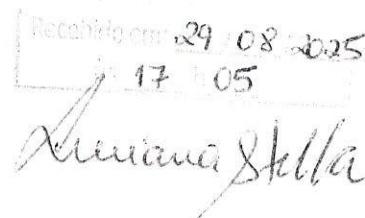 Recebido em: 29 08 2025
17 h 05
Luciana Stella